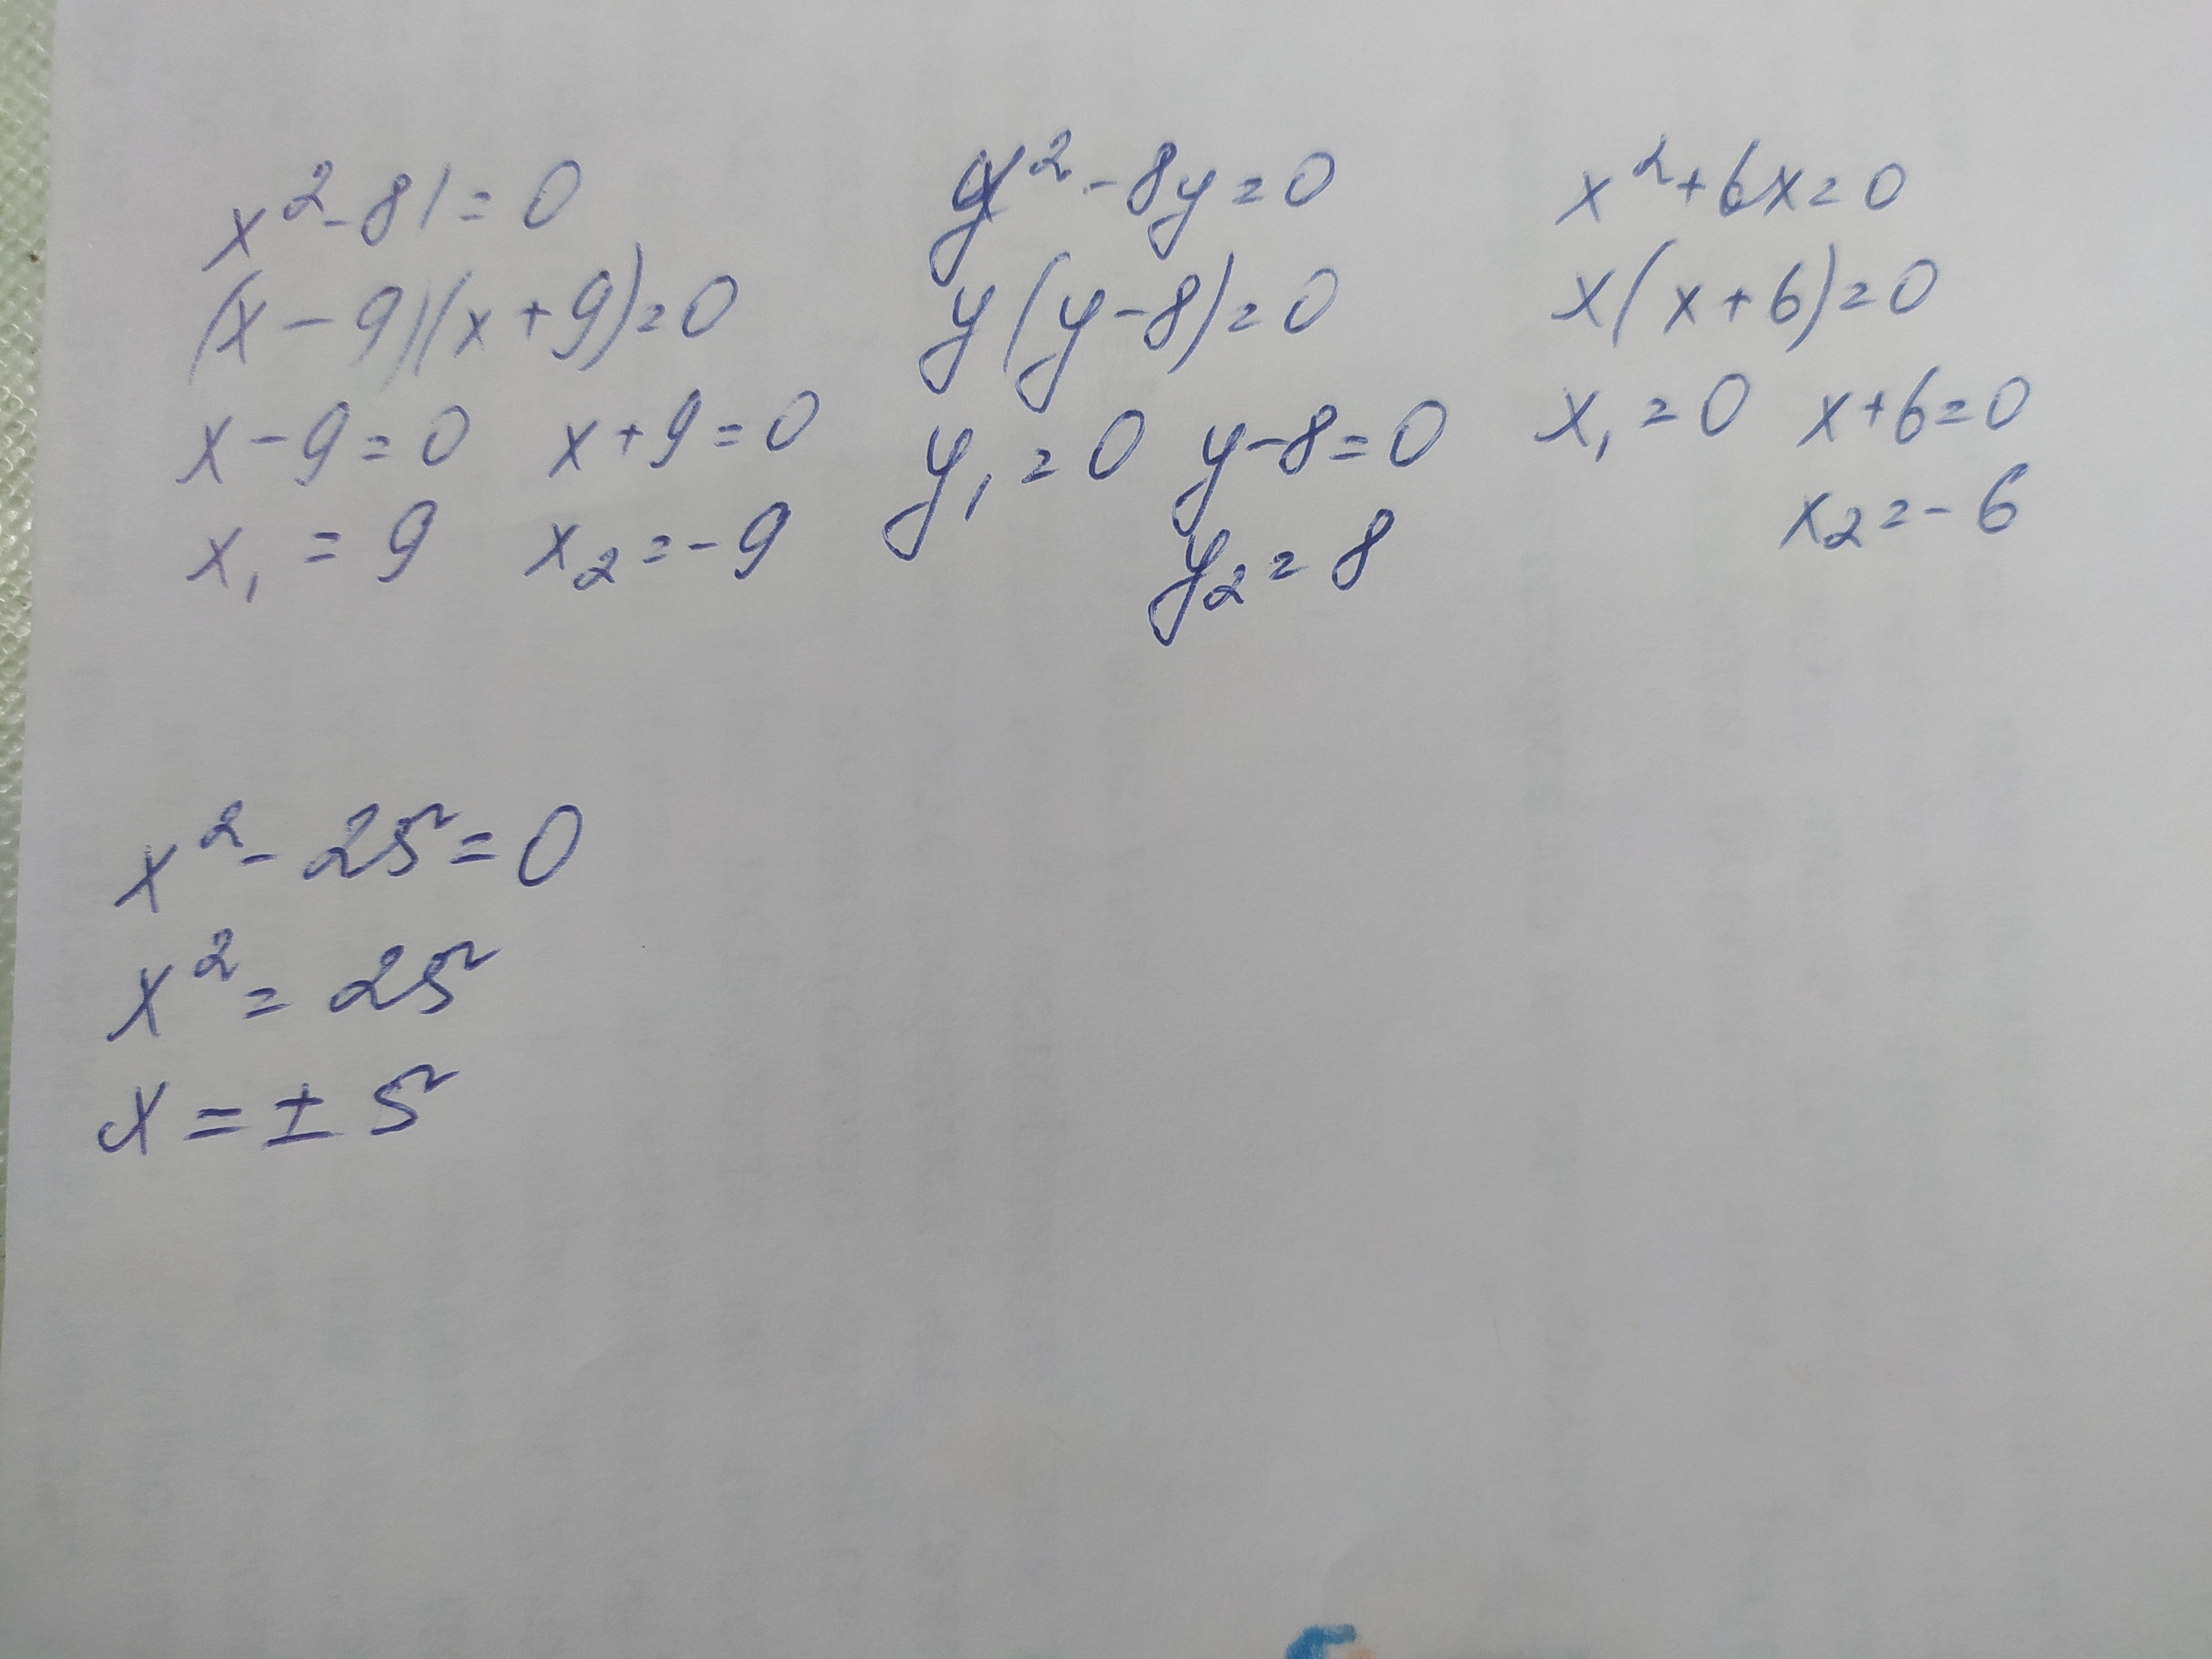 x² - 81 = 0
(x - 9)(x + 9) = 0
x - 9 = 0 x + 9 = 0
x₁ = 9 x₂ = -9
y² - 8y = 0
y(y - 8) = 0
y₁ = 0 y - 8 = 0
y₂ = 8
x² + 6x = 0
x(x + 6) = 0
x₁ = 0 x + 6 = 0
x₂ = -6
x² - 25 = 0
x² = 25
x = ± 5